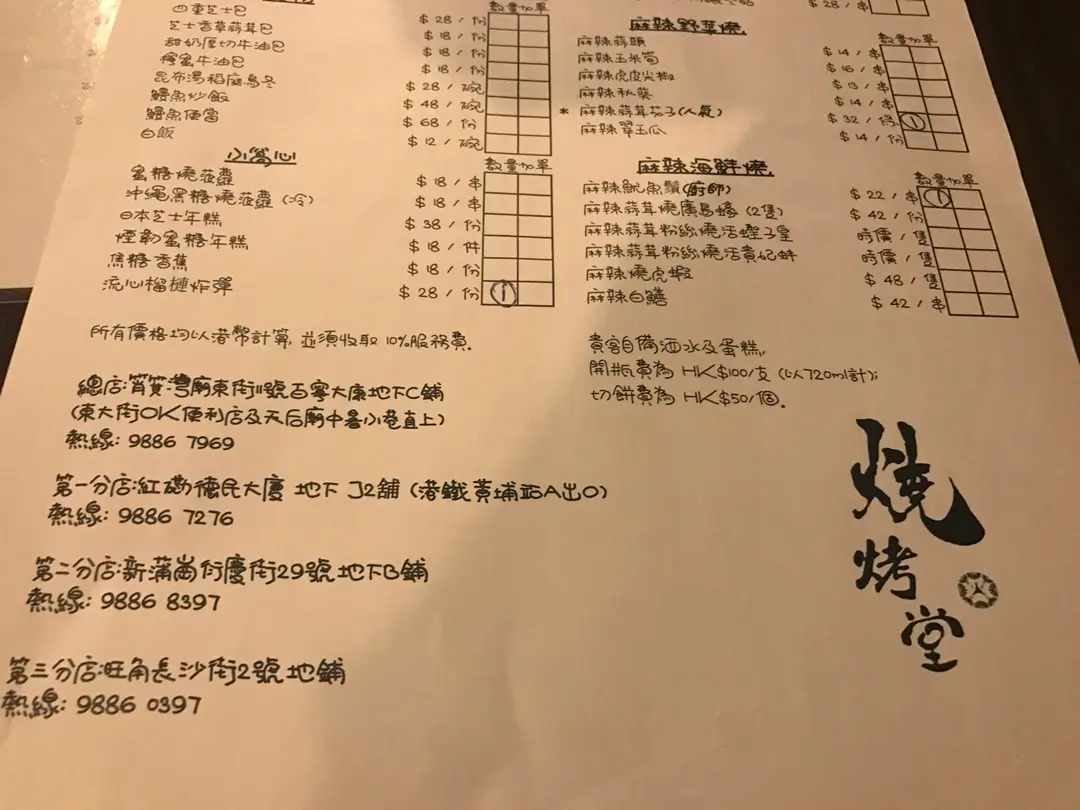 四重芝士包 $ 28 / 份
芝士香草蒜茸包 $ 18 / 份
甜奶厚切牛油包 $ 18 / 份
檸蜜牛油包 $ 18 / 份
昆布湯稻庭烏冬 $ 28 / 碗
鰻魚炒飯 $ 48 / 碗
鰻魚便當 $ 68 / 份
白飯 $ 12 / 碗
數量加單
小窩心
數量加單
蜜糖燒菠蘿 $ 18 / 串
沖繩黑糖燒菠蘿 (冷) $ 18 / 串
日本芝士年糕 $ 38 / 份
煙韌蜜糖年糕 $ 18 / 件
焦糖香蕉 $ 18 / 份
流心榴槤炸彈 $ 28 / 份 1
所有價格均以港幣計算, 並須收取 10%服務費.
$ 28 / 串
麻辣野菜燒
數量加單
麻辣蒜頭 $ 14 / 串
麻辣玉米筍 $ 16 / 串
麻辣虎皮尖椒 $ 13 / 串
麻辣秋葵 $ 14 / 串
* 麻辣蒜茸茄子(人氣) $ 32 / 份 1
麻辣翠玉瓜 $ 14 / 份
麻辣海鮮燒
數量加單
麻辣魷魚鬚(廚師) $ 22 / 串 1
麻辣蒜茸燒廣島蠔 (2隻) $ 42 / 份
麻辣蒜茸粉絲燒活蟶子皇 時價 / 隻
麻辣蒜茸粉絲燒活貴妃蚌 時價 / 隻
麻辣燒虎蝦 $ 48 / 隻
麻辣白鱔 $ 42 / 串
貴客自備酒水及蛋糕,
開瓶費為 HK$100/支 (以720ml計);
切餅費為 HK$50/個.
總店:筲箕灣廟東街11號百寧大廈地下C鋪
(東大街OK便利店及天后廟中暑小巷直上)
熱線: 9886 7969
第一分店:紅磡德民大廈 地下 J2舖 (港鐵黃埔站A出口)
熱線: 9886 7276
第二分店:新蒲崗衍慶街29號地下B鋪
熱線: 9886 8397
第三分店:旺角長沙街2號地鋪
熱線: 9886 0397
燒烤堂